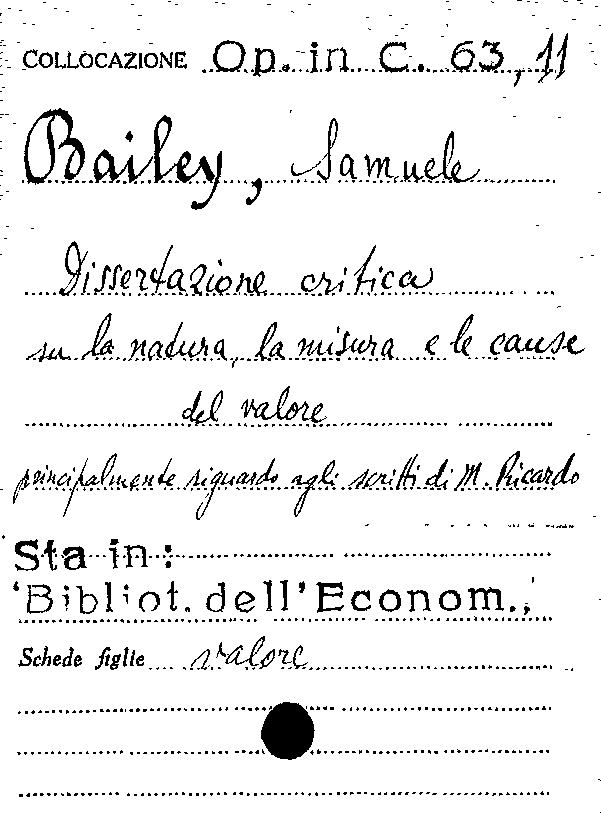 COLLOCAZIONE Op. in C. 63, 11
Bailey, Samuele
Dissertazione critica
su la natura, la misura e le cause
del valore
principalmente riguardo agli scritti di M. Ricardo
Sta in:
'Bibliot. dell'Econom.,'
Schede figlie valore